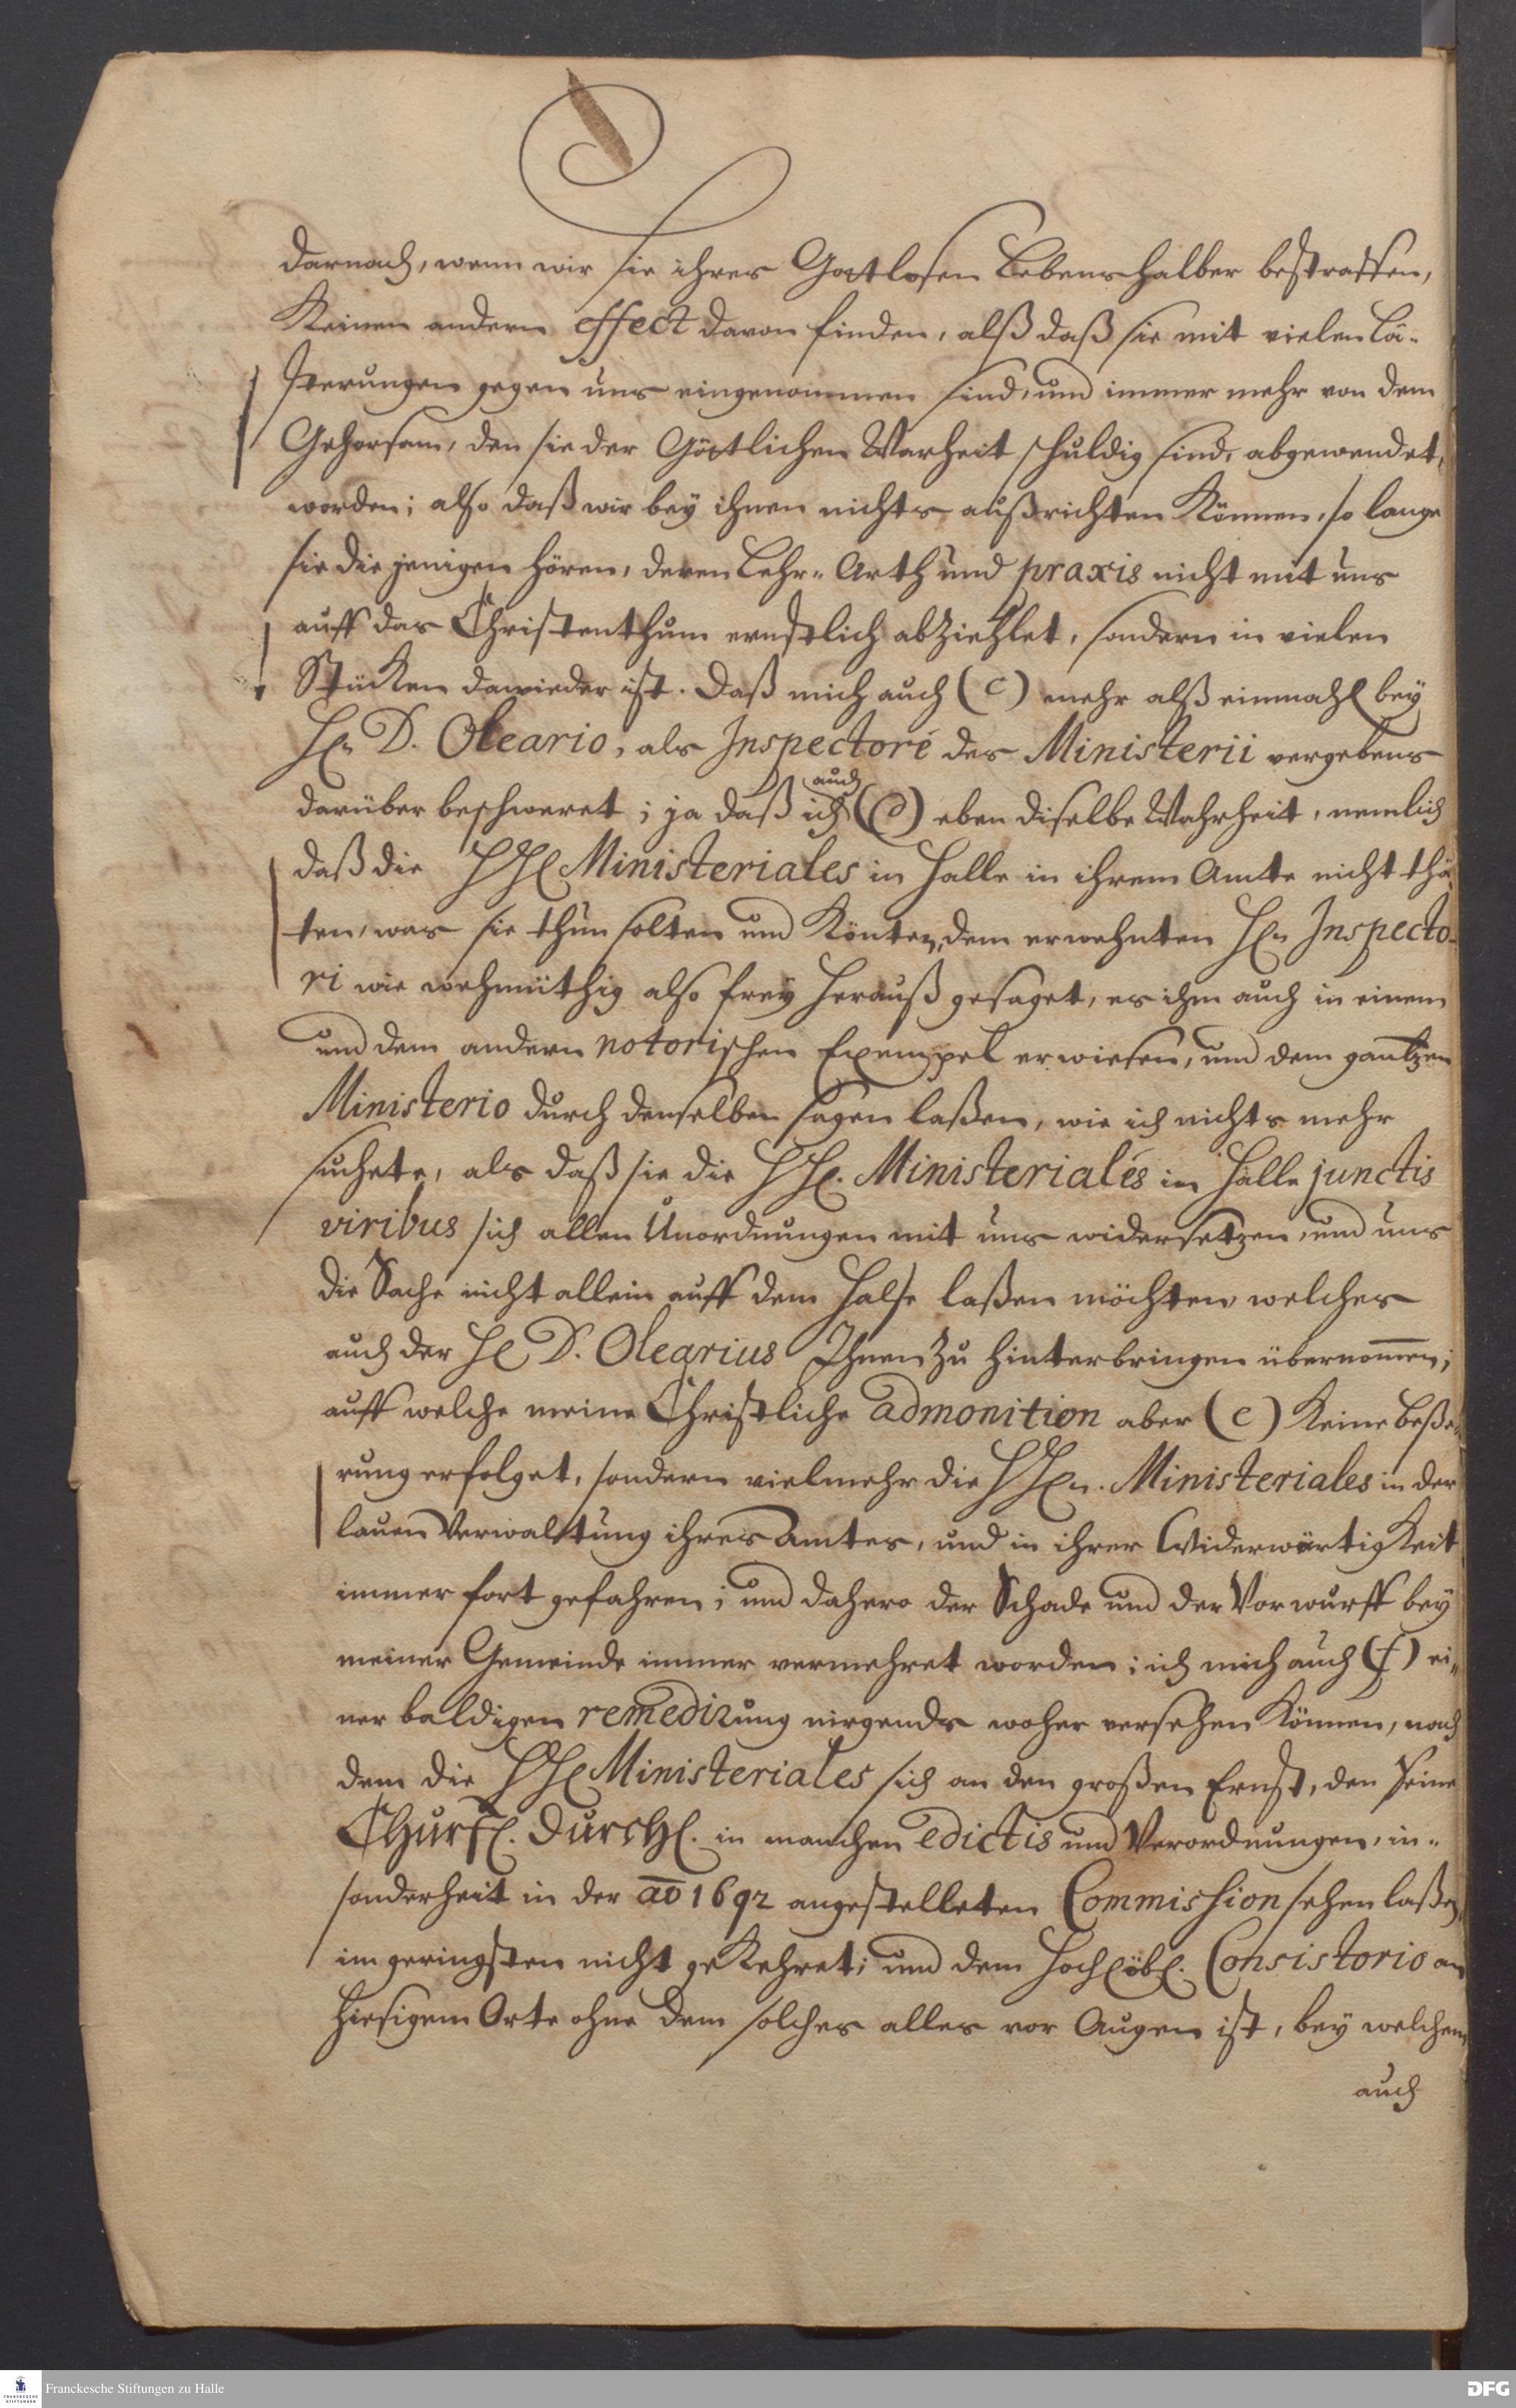 darnach, wenn wir sie ihres Gottlosen Lebens halber bestraffen,
Keinen andern effect davon finden, alß daß sie mit vielen Lä-
sterungen gegen uns eingenommen sind, und immer mehr von dem
Gehorsam, den sie der Göttlichen Warheit schuldig sind, abgewendet
worden; also daß wir bey ihnen nichts außrichten Können, so lange
sie die jenigen hören, deren Lehr-Arth und praxis nicht mit uns
auff das Christenthum ernstlich abziehlet, sondern in vielen
Stücken dawieder ist. Daß mich auch (c) mehr alß einmahl bey
Hn D. Oleario, als Inspectore des Ministerii vergebens
darüber beschweret; ja daß ich auch (d) eben diselbe Wahrheit, nemlich
daß die HHl Ministeriales in Halle in ihrem Amte nicht thä
ten, was sie thun solten und Könten, dem erwehnten Hn Inspecto-
ri wie wehmüthig also frey herauß gesaget, es ihm auch in einem
und dem andern notorischen Exempel erwiesen, und dem gantzen
Ministerio durch denselben sagen laßen, wie ich nichts mehr
suchete, als daß sie die HHl. Ministeriales in Halle junctis
viribus sich allen Unordnungen mit uns widersetzen, und uns
die Sache nicht allein auff dem Halse laßen möchten welches
auch der Hl D. Olearius Ihnen zu hinterbringen übernommen;
auff welche meine Christliche admonition aber (e) Keine beße-
rung erfolget, sondern vielmehr die HHn. Ministeriales in der
lauen Verwaltung ihres Amtes, und in ihrer WiderwärtigKeit
immer fort gefahren; und dahero der Schade und der Vorwurff bey
meiner Gemeinde immer vermehret worden; ich mich auch (f) ei-
ner baldigen remedirung nirgends woher versehen Können, nach
dem die HHl Ministeriales sich an den großen Ernst, den seine
Churfl. Durchl. in manchen edictis und Verordnungen, in-
sonderheit in der ao 1692 angestelleten Commission sehen laßen,
im geringsten nicht geKehret; und dem Hochlöbl. Consistorio an
hiesigem Orte ohne dem solches alles vor Augen ist, bey welchem
auch
Franckesche Stiftungen zu Halle
FRANCKESCHE STIFTUNGEN
DFG